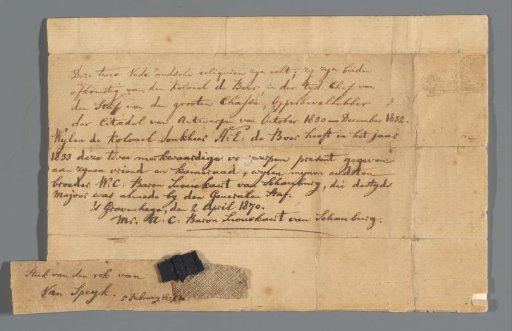 Deze twee Vade andsche reliquien zyn echt; zy zyn beiden
afkomstig van den Kolonel de Boer, in der tyd Chef van
den Staf van den grooten Chassé, Opperbevelhebber
der Citadel van Antwerpen van October 1830 — December 1832.
Wylen de Kolonel Jonkheer H: E: de Boer heeft in het jaar
1833 deze twee merkwaardige voorwerpen present gegeven
aan zynen vriend en kameraad, wylen mynen oudsten
broeder W: C: Baron Snouckaert van Schauburg, die destyds
Majoor was almede by den Generalen Staf.
's Gravenhage, den 2 April 1870.
Mr. A. C. Baron Snouckaert van Schauburg.
Stuk van den rok van
Van Speyk. 5 February